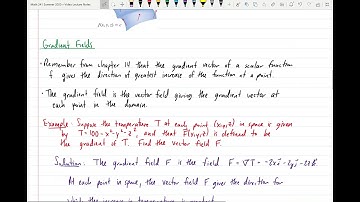 Math 24 - Summer 2020 - Video Lecture Notes
Gradient Fields
• Remember from chapter 14 that the gradient vector of a scalar function
f gives the direction of greatest increase of the function at a point.
• The gradient field is the vector field giving the gradient vector at
each point in the domain.
Example: Suppose the temperature T at each point (x,y,z) in space is given
by T=100-x²-y²-z², and that F(x,y,z) is defined to be
the gradient of T. Find the vector field F.
Solution: The gradient field F is the field F = ∇T = -2xi - 2yj - 2zk.
At each point in space, the vector field F gives the direction for
which the increase in temperature is greatest